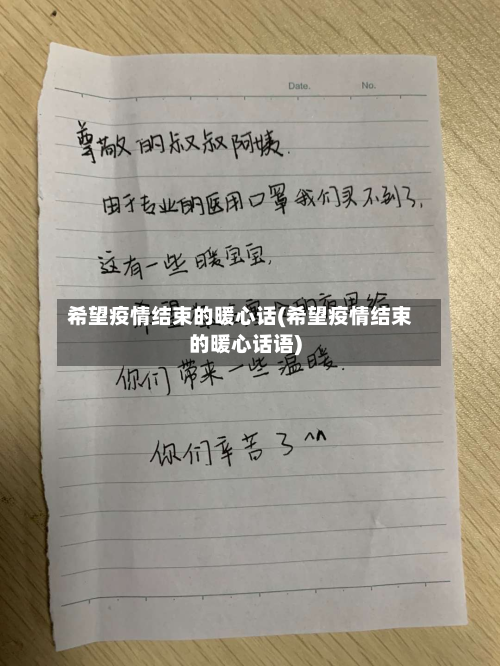 Date. No.
尊敬的叔叔阿姨.
由于专业的医用口罩我们买不到了,
这有一些暖宝宝,
希望疫情结束的暖心话(希望疫情结束
的暖心话语)
你们带来一些温暖.
你们辛苦了^^